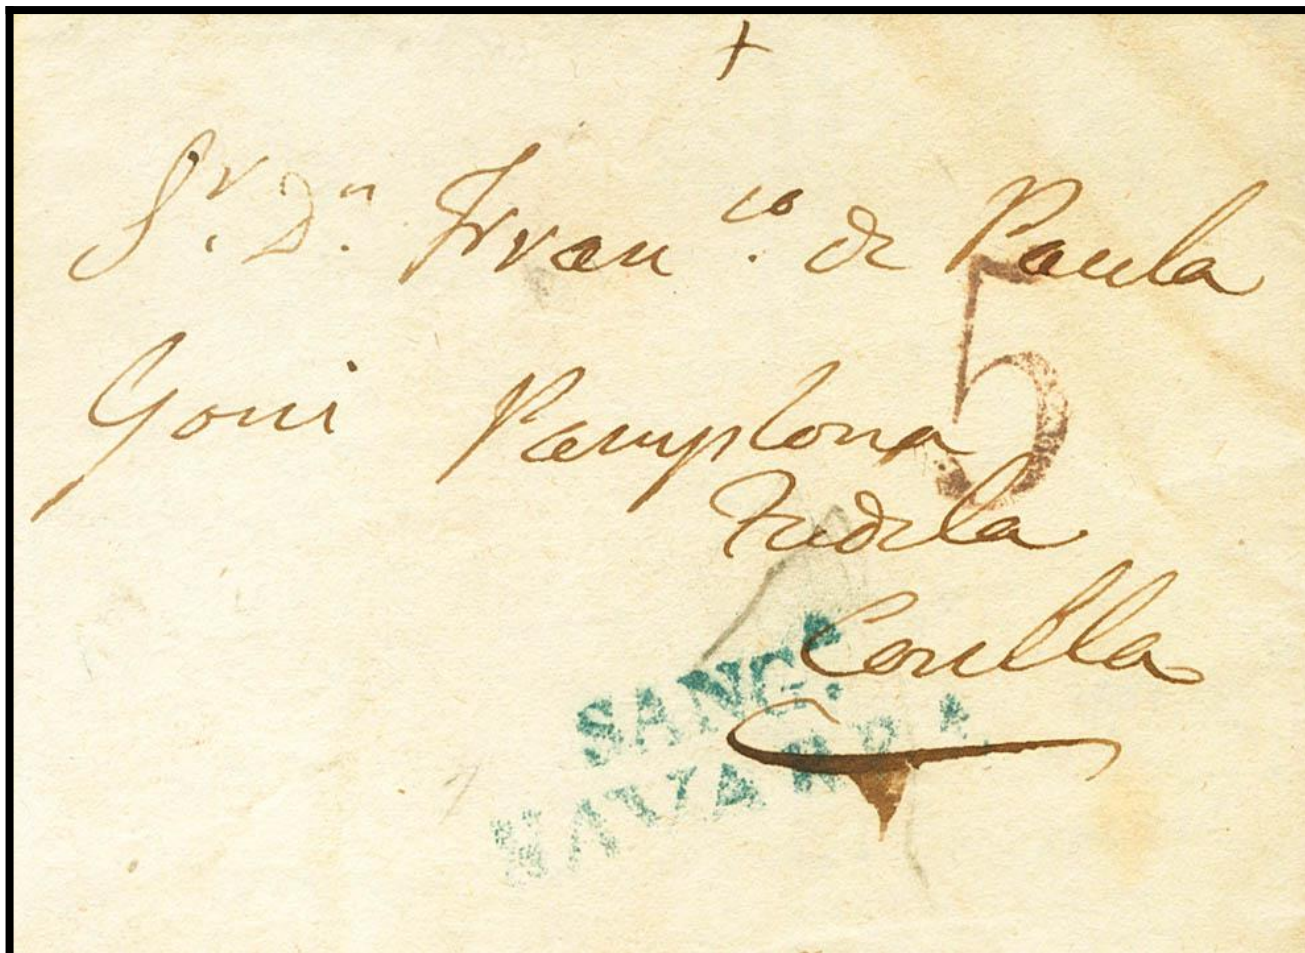 +
Sr. Dn. Franco. de Paula
Goñi Pamplona
5
Tudela
Corella
SANG.A
NAVARRA